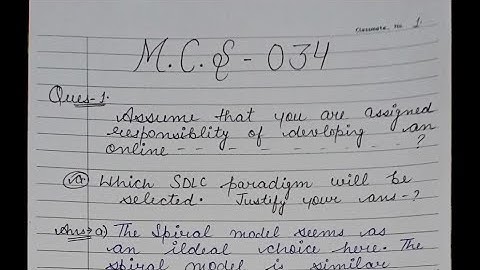 Classmate, No. 1.
M.C.S - 034
Ques-1.
Assume that you are assigned
responsiblity of developing an
online - - - - - - - - - - ?
(a) Which SDLC paradigm will be
selected. Justify your ans-?
Ans:a) The Spiral model seems as
an ildeal choice here. The
spiral model is similar